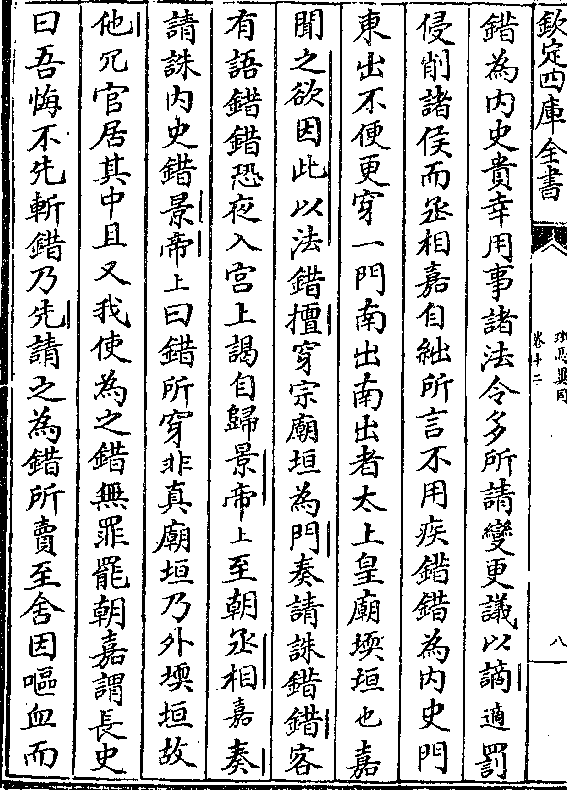 欽定四庫全書
班馬異同
卷十二
八
錯為内史貴幸用事諸法令多所請變更議以謫適罰
侵削諸侯而丞相嘉自絀所言不用疾錯錯為内史門
東出不便更穿一門南出南出者太上皇廟堧垣也嘉
聞之欲因此以法錯擅穿宗廟垣為門奏請誅錯錯客
有語錯錯恐夜入宫上謁自歸景帝上至朝丞相嘉奏
請誅内史錯景帝上曰錯所穿非真廟垣乃外堧垣故
他冗官居其中且又我使為之錯無罪罷朝嘉謂長史
曰吾悔不先斬錯乃先請之為錯所賣至舍因嘔血而